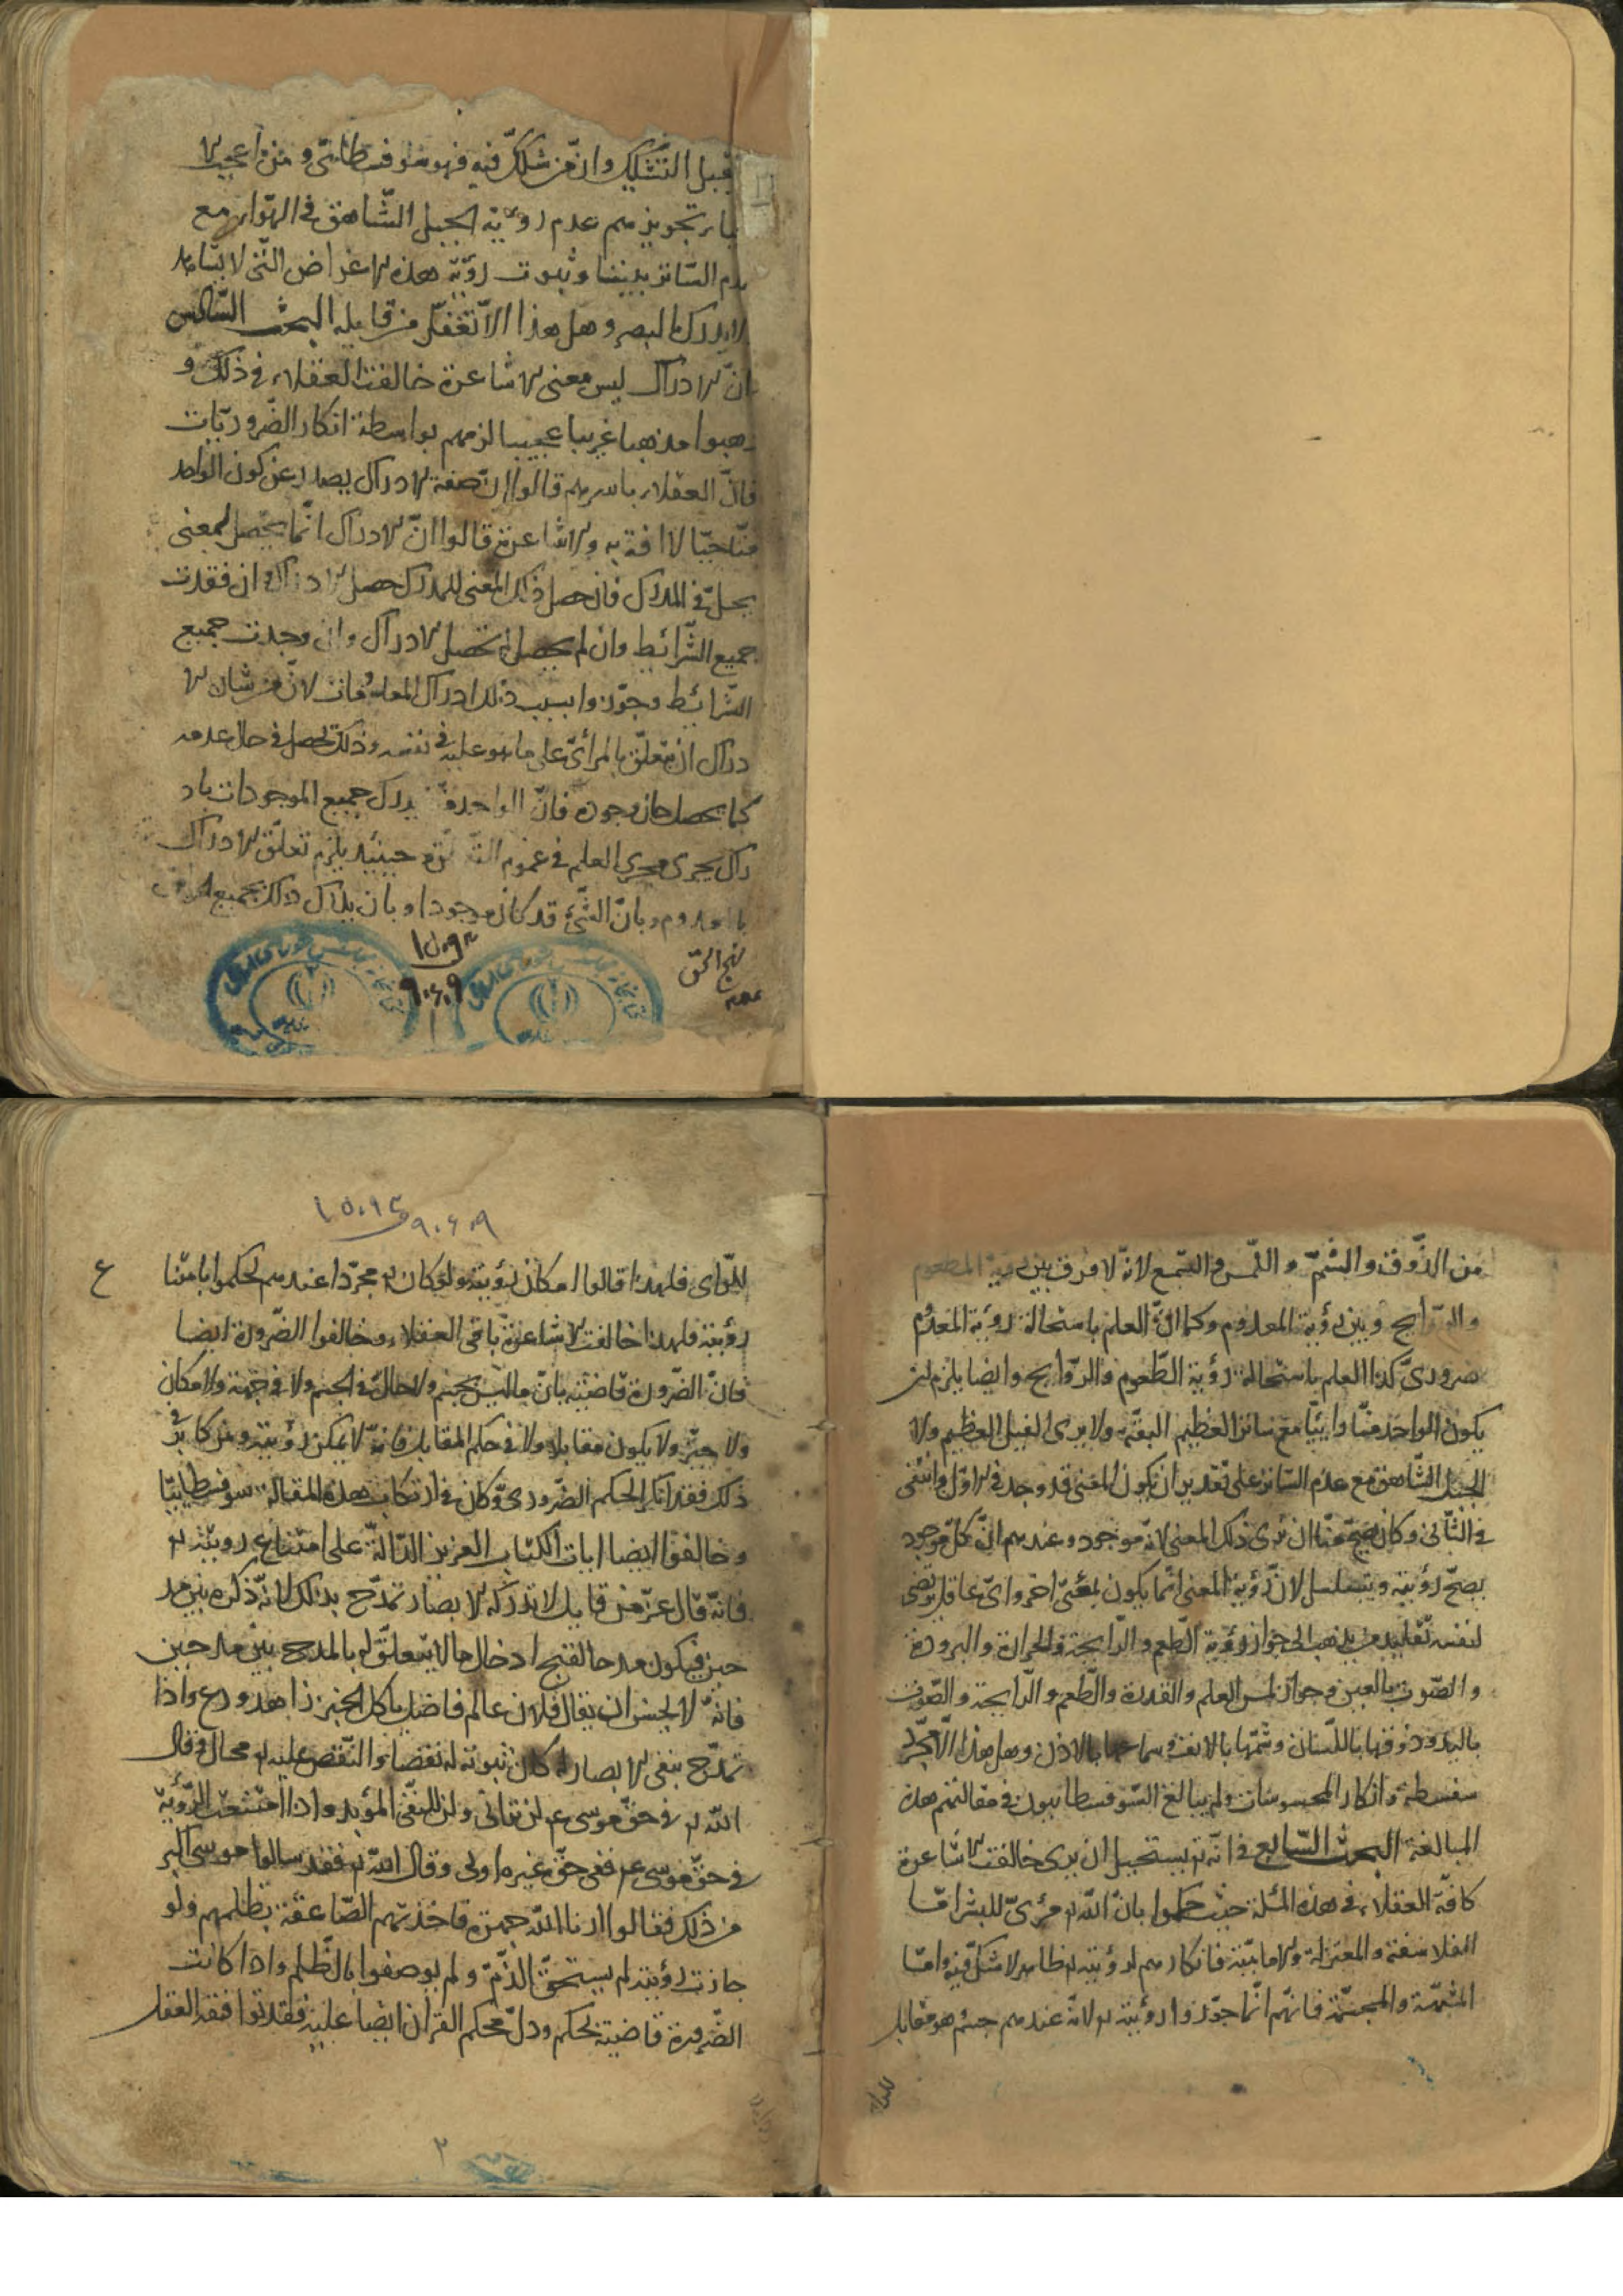 قبيل التشكيك وان من شكك فيه فهو سوفسطائي ومن اعجب الا
تجويزهم عدم رؤية الجبل الشاهق في الهواء مع
عدم الساتر بيننا وثبوت رؤية هذه الاعراض التي لا يشاهد
لا يدرك بالبصر وهل هذا الا تغفل من قايله البحث السادس
ان الادراك ليس معنى الاشاعرة خالفت العقلاء في ذلك و
ذهبوا مذهبا غريبا عجيبا لزمهم بواسطة انكار الضروريات
فان العقلاء باسرهم قالوا ان صفة الادراك يصدر عن كون الواحد
منا حيا لا افة به والاشاعرة قالوا ان الادراك انما يحصل لمعنى
يحل في المدرك فان حصل ذلك المعنى للمدرك حصل الادراك وان فقدت
جميع الشرائط وان لم يحصل لم يحصل الادراك وان وجدت جميع
الشرائط وجوزوا بسبب ذلك ادراك المعدومات لان من شان الا
دراك ان يتعلق بالمرائي على ما هو عليه في نفسه وذلك يحصل في حال عدمه
كما يحصل حال وجوده فان الواحد منا يدرك جميع الموجودات باد
راك يجري مجرى العلم في عموم التعلق وحينئذ يلزم تعلق الادراك
بالمعدوم وبان الشئ قد كان موجودا وبان يدرك ذلك بجميع الحواس
نهج الحق
١٥٠٩٣
٩٠٤٠٩
من الذوق والشم واللمس والسمع لانه لا فرق بين رؤية المطعوم
والروايح وبين رؤية المعدوم وكما ان العلم باستحالة رؤية المعدوم
ضروري كذا العلم باستحالة رؤية الطعوم والروايح وايضا يلزم ان
يكون الواحد منا رائيا مع ساتر العظيم البقة ولا يرى الفيل العظيم ولا
الجبل الشاهق مع عدم الساتر على تقدير ان يكون المعنى قد وجد في الاول وانتفى
في الثاني وكان يصح منا ان نرى ذلك المعنى لانه موجود وعندهم ان كل موجود
يصح رؤيته ويتسلسل لان رؤية المعنى انما يكون بمعنى اخر واي عاقل يرتضي
لنفسه تقليد من يذهب الى جواز رؤية الطعم والرايحة والحرارة والبرودة
والصوت بالعين وجواز لمس العلم والقدرة والطعم والرايحة والصوت
باليد وذوقها باللسان وشمها بالانف وسماعها بالاذن وهل هذا الا مجرد
سفسطة وانكار المحسوسات ولم يبالغ السوفسطائيون في مقالتهم هذه
المبالغة البحث السابع في انه تع يستحيل ان يرى خالفت الاشاعرة
كافة العقلاء في هذه المسئلة حيث حكموا بان الله تع مرئي للبشر اما
الفلاسفة والمعتزلة والامامية فانكارهم لرؤيته تع ظاهر لا شك فيه واما
المشبهة والمجسمة فانهم انما جوزوا رؤيته تع لانه عندهم جسم هو مقابل
للرائي
١٥٠٩٣
٩٠٤٠٩
للرائي فلهذا قالوا امكان رؤيته ولو كان تع مجردا عندهم لحكموا بامتناع
رؤيته فلهذا خالفت الاشاعرة باقي العقلاء وخالفوا الضرورة ايضا
فان الضرورة قاضية بان ما ليس بجسم ولا حال في الجسم ولا في جهة ولا مكان
ولا حيز ولا يكون مقابلا ولا في حكم المقابل فانه لا يمكن رؤيته ومن كابر في
ذلك فقد انكر الحكم الضروري وكان في ارتكاب هذه المقالة سوفسطائيا
وخالفوا ايضا ايات الكتاب العزيز الدالة على امتناع رويته تع
فانه قال عز من قايل لا تدركه الابصار تمدح بذلك لانه ذكره بين مد
حين فيكون مدحا لقبح ادخال ما لا يتعلق له بالمدح بين مدحين
فانه لا يحسن ان يقال فلان عالم فاضل ياكل الخبز زاهد ورع واذا
تمدح بنفي الابصار له كان ثبوته له نقصا والنقص عليه تع محال وقال
الله تع في حق موسى ع م لن تراني ولن للنفي المؤبد واذا امتنعت الرؤية
في حق موسى ع م ففي حق غيره اولى وقال الله تع فقد سالوا موسى اكبر
من ذلك فقالوا ارنا الله جهرة فاخذتهم الصاعقة بظلمهم ولو
جازت رؤيته لم يستحق الذم ولم يوصفوا بالظلم واذا كانت
الضرورة قاضية بحكم ودل محكم القران ايضا عليه فقد توافقه العقل
٢